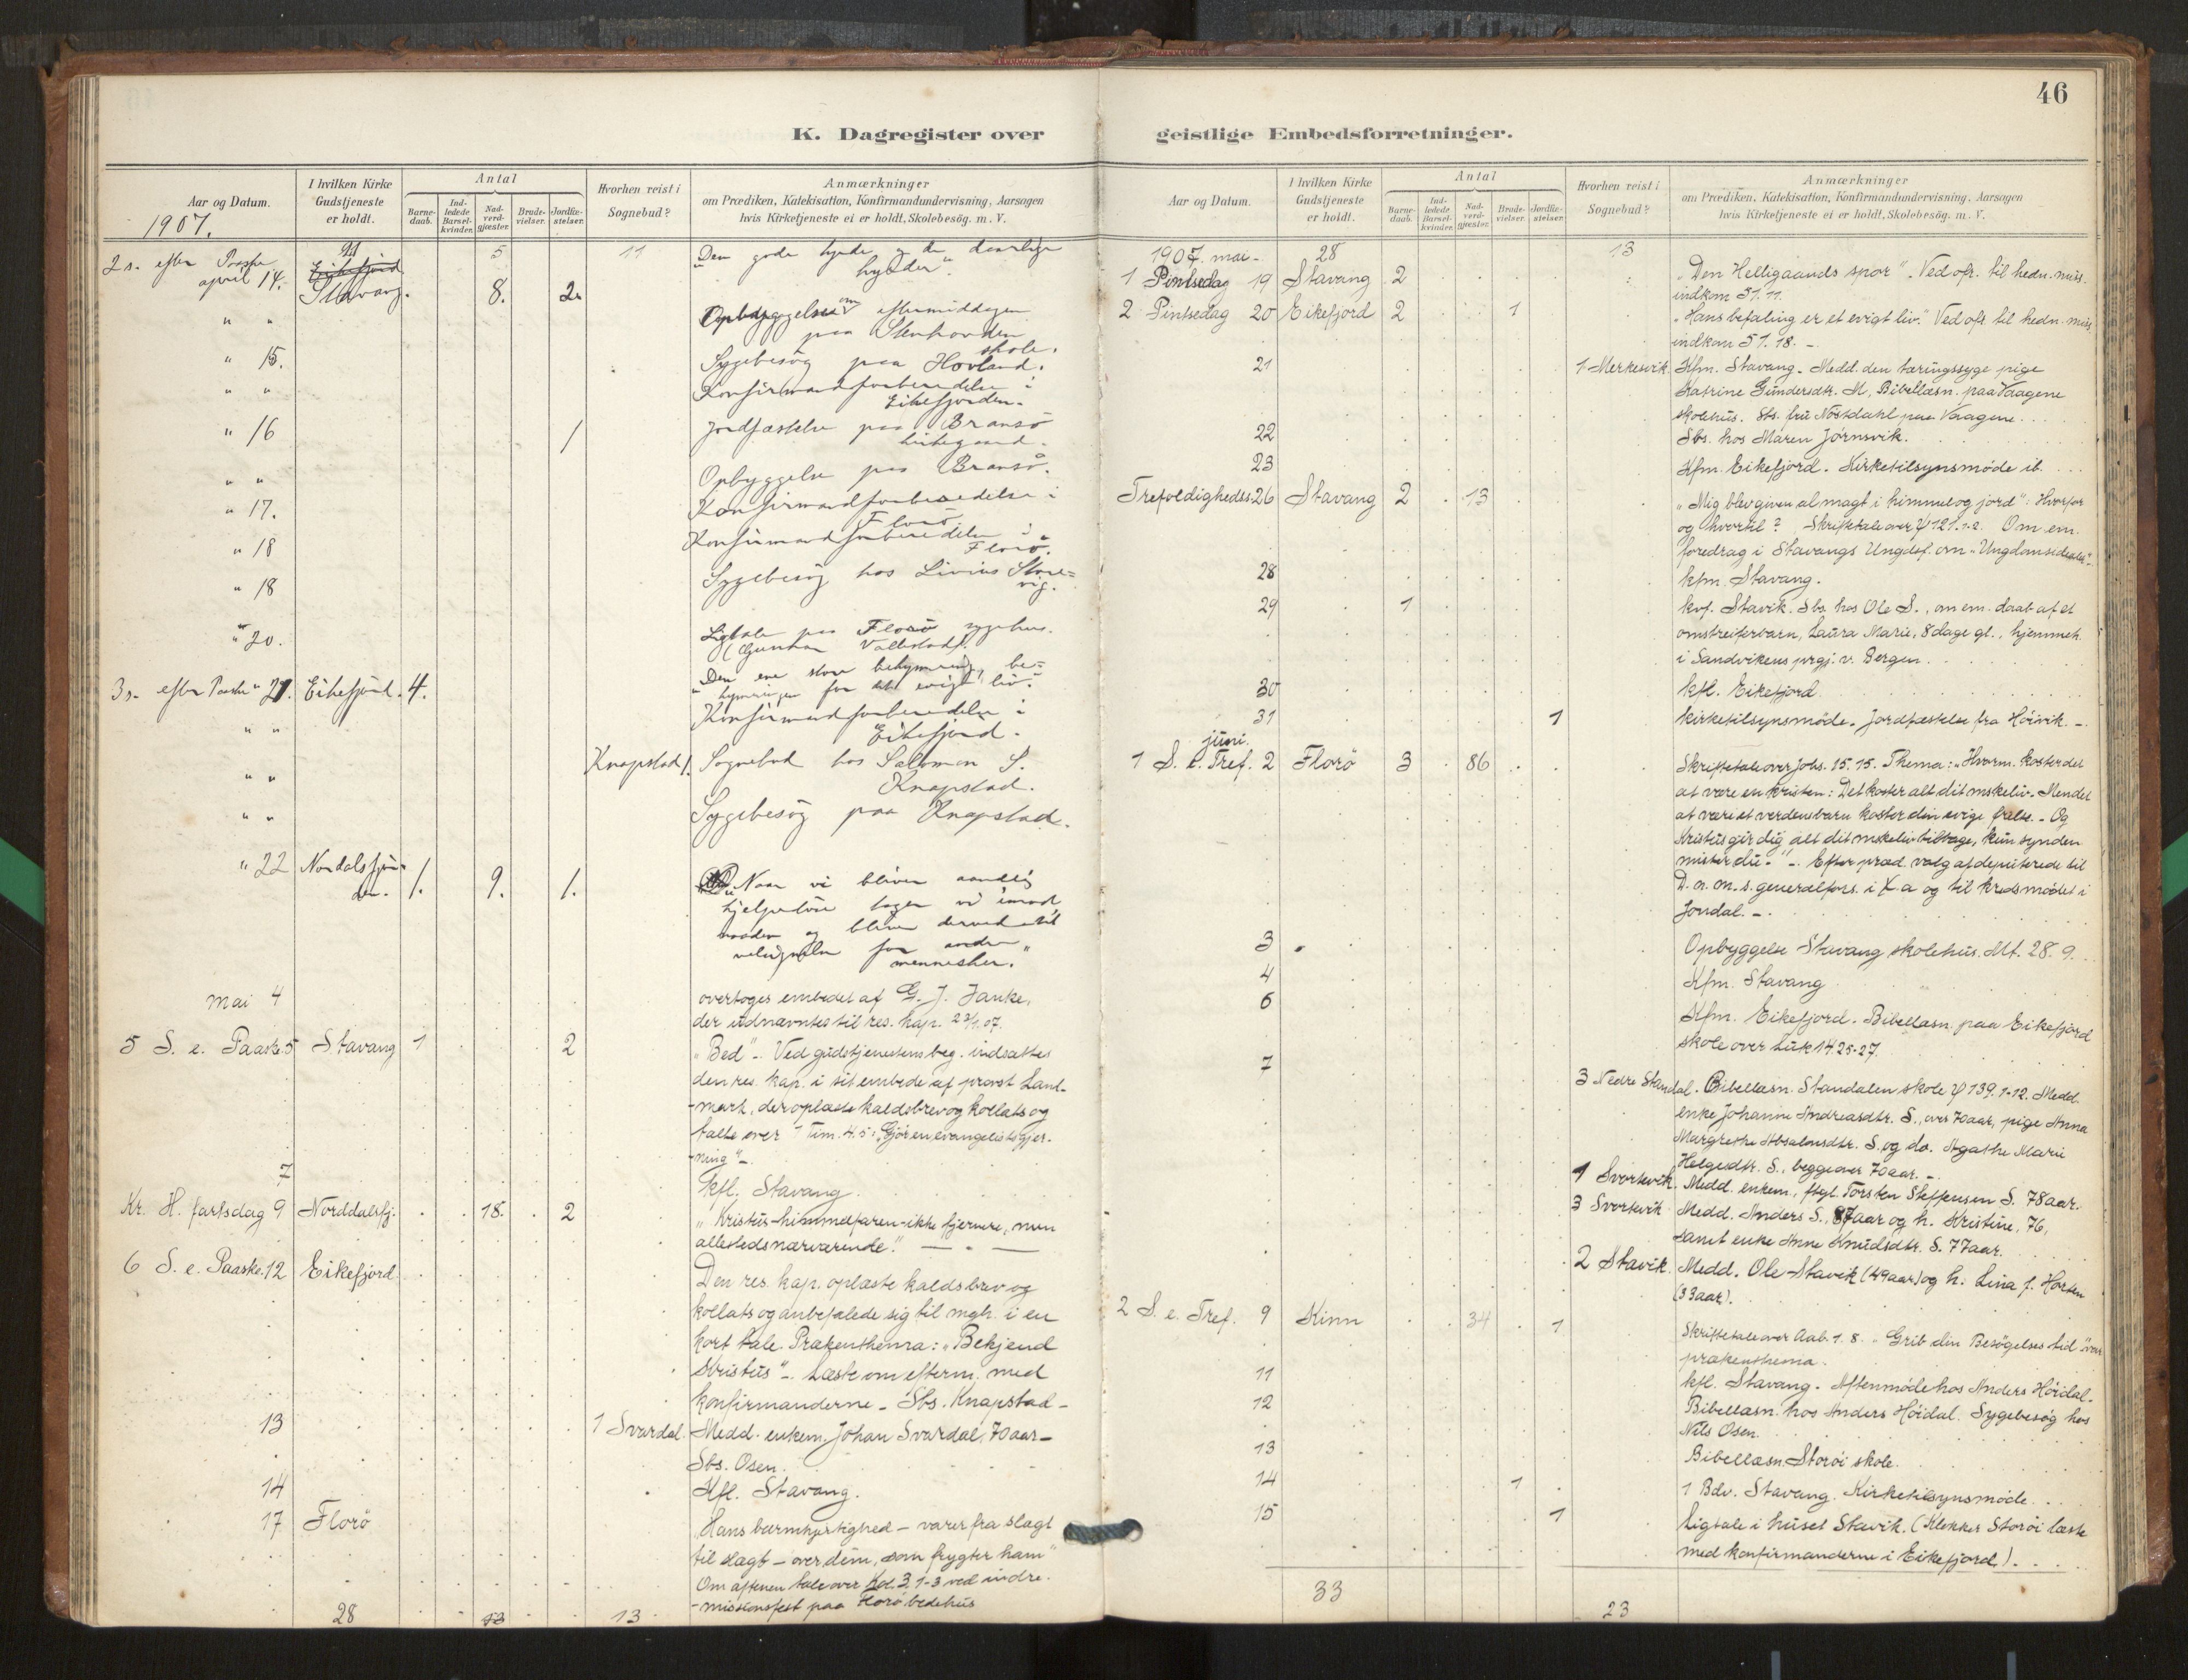 46
K. Dagregister over geistlige Embedsforretninger.
Aar og Datum.
I hvilken Kirke Gudstjeneste er holdt.
Antal
Barne-daab.
Ind-ledede Barsel-kvinder.
Nad-verd-gjæster.
Brude-vielser.
Jordfæ-stelser.
Hvorhen reist i Sognebud?
Anmærkninger
om Prædiken, Katekisation, Konfirmandundervisning, Aarsagen
hvis Kirketjeneste ei er holdt, Skolebesög. m. V.
1907.
21 5 11
2 s. efter Paaske april 14. Eikefjord Stavang. 8. 2
"Den gode hyrde og de daarlige
hyrder".
" " Opbyggelse om eftermiddagen
paa Stenhovden
skole.
" 15. Sygebesög paa Hovland.
" " Konfirmandforberedelse i
Eikefjorden.
" 16 1 Jordfæstelse paa Bransö
kirkegaard.
" " Opbyggelse paa Bransö.
" 17. Konfirmandforberedelse i
Florö
" 18 Konfirmandforberedelse i
Florö.
" 18 Sygebesög hos Livius Store-
vig.
" 20. Ligtale paa Florö sygehus.
(Gunhar Vallestad).
3 s. efter Paaske " 21. Eikefjord. 4. "Den ene store bekymring, be-
kymringen for et evigt liv."
" " Konfirmandforberedelse i
Eikefjord.
" " Knapstad 1. Sognebud hos Salomon S.
Knapstad.
" " Sygebesög paa Knapstad.
" 22 Nordalsfjor-
den. 1. 9. 1. "Naar vi bliver aandlig
hjelpelöse tager vi imod
naaden og bliver derved til
velsignelse for andre
mennesker."
mai 4 overtoges embedet af G. J. Janke,
der udnævntes til res. kap. 23/1 07.
5 S. e. Paaske 5 Stavang 1 2 "Bed" - Ved gudstjenestens beg. indsattes
den res. kap. i sit embede af provst Land-
-mark, der oplæste kaldsbrev og kollats og
talte over Tim. 4.5: "Gjör en evangelists gjer-
-ning" -
7 Kfl. Stavang
Kr. H. fartsdag 9 Norddalsfj. 18. 2 "Kristus-himmelfaren-ikke fjernere, men
allestedsnærværende."
6 S. e. Paaske. 12 Eikefjord. Den res. kap. oplæste kaldsbrev og
kollats og anbefalede sig til mgh. i en
kort tale. Prækenthema: "Bekjend
Kristus" - Læste om efterm. med
konfirmanderne - Sbs. Knapstad -
13 1 Svardal. Medd. enkem. Johan Svardal, 70 aar -
Sbs. Osen.
14 Kfl. Stavang.
17 Florö "Hans barmhjertighed - varer fra slægt
til slægt - over dem, som frygter ham"
Om aftenen tale over Kol. 3, 1-3 ved indre-
-missionsfest paa Florö bedehus
28 13 13
1907. mai - 28 13
1 Pintsedag 19 Stavang 2 "Den Helligaands spor". Ved ofr. til hedn. miss.
indkom 51.11.
2 Pintsedag 20 Eikefjord 2 1 "Hans befaling er et evigt liv." Ved ofr. til hedn. miss.
indkom 51.18. -
21 1 Merkesvik. Kfm. Stavang. Medd. den tæringssyge pige
Katrine Gundersdtr. M, Bibellæsn. paa Vaagene
skolehus. Sbs. fru Nöstdahl paa Vaagene.
22 Sbs. hos Maren Jörnsvik.
23 Kfm. Eikefjord. Kirketilsynsmöde ib.
Trefoldighedss. 26 Stavang 2 13 "Mig blev given al magt i himmel og jord": Hvorfor
og hvortil? Skriftetale over ψ 121.1-2. Om em.
foredrag i Stavangs Ungdsf. om "Ungdomsidealer".
28 kfm. Stavang.
29 1 kvf. Stavik. Sbs. hos Ole S., om em. daab af et
omstreiferbarn, Laura Marie, 8 dage gl., hjemmeh.
i Sandvikens prgj. v. Bergen.
30 kfl. Eikefjord
31 1 kirketilsynsmöde. Jordfæstelse fra Höivik. -
juni.
1 S. e. Tref. 2 Florö 3 86 Skriftetale over Johs. 15. 15. Thema: "Hvorm. koster det
at være en kristen: Det koster alt dit mskeliv. Men det
at være et verdensbarn koster din evige frelse. - Og
Kristus gir dig alt dit mskeliv tilbage, kun synden
mister du -" -. Efter præd. valg af deputerede til
D. n. m. s. generalfors. i X.a og til kredsmödet i
Jondal. -
3 Opbyggelse Stavang skolehus. Mt. 28. 9.
4 Kfm. Stavang
6 Kfm. Eikefjord. Bibellæsn. paa Eikefjord
skole over Luk 14.25-27.
7 3 Nedre Standal. Bibellæsn. Standalen skole ψ 139. 1-12. Medd.
enke Johanne Andreasdtr. S., over 70 aar, pige Anna
Margrethe Absalonsdtr. S. og do. Agathe Marie
Helgesdtr. S., begge over 70 aar. -
1 Svortevik. Medd. enkem., ftgl. Torsten Steffensen S. 78 aar.
3 Svortevik Medd. Anders S., 87 aar og h. Kristine, 76,
samt enke Anne Knudsdtr. S. 77 aar.
2 Stavik. Medd. Ole Stavik (49 aar) og h. Lina f. Horsen
(33 aar).
2 S. e. Tref. 9 Kinn 34 1 Skriftetale over Aab. 1. 8. "Grib din Besögelses tid" var
prækenthema.
11 kfl. Stavang. Aftenmöde hos Anders Höidal.
12 Bibellæsn. hos Anders Höidal. Sygebesög hos
Nils Osen.
13 Bibellæsn. Storöi skole.
14 1 1 Bdv. Stavang. Kirketilsynsmöde
15 1 Ligtale i huset Stavik. (Klokker Storöi læste
med konfirmanderne i Eikefjord).
33 23